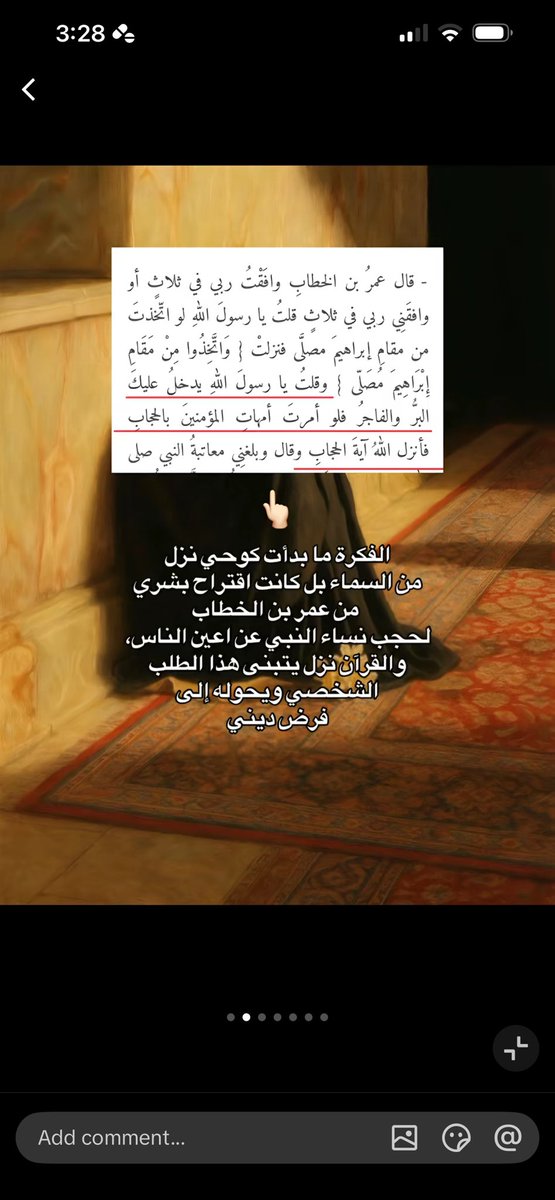 3:28
- قال عمرُ بن الخطابِ وافَقْتُ ربي في ثلاثٍ أو
وافقَنِي ربي في ثلاثٍ قلتُ يا رسولَ اللهِ لو اتَّخذتَ
من مقامِ إبراهيمَ مصلَّى فنزلتْ { وَاتَّخِذُوا مِنْ مَقَامِ
إِبْرَاهِيمَ مُصَلّى } وقلتُ يا رسولَ اللهِ يدخلُ عليكَ
البرُّ والفاجرُ فلو أمرتَ أمهاتِ المؤمنينَ بالحجابِ
فأنزل اللهُ آيةَ الحجابِ وقال وبلغنِي معاتبةُ النبي صلى
الفكرة ما بدأت كوحي نزل
من السماء بل كانت اقتراح بشري
من عمر بن الخطاب
لحجب نساء النبي عن اعين الناس،
والقرآن نزل يتبنى هذا الطلب
الشخصي ويحوله إلى
فرض ديني
Add comment...